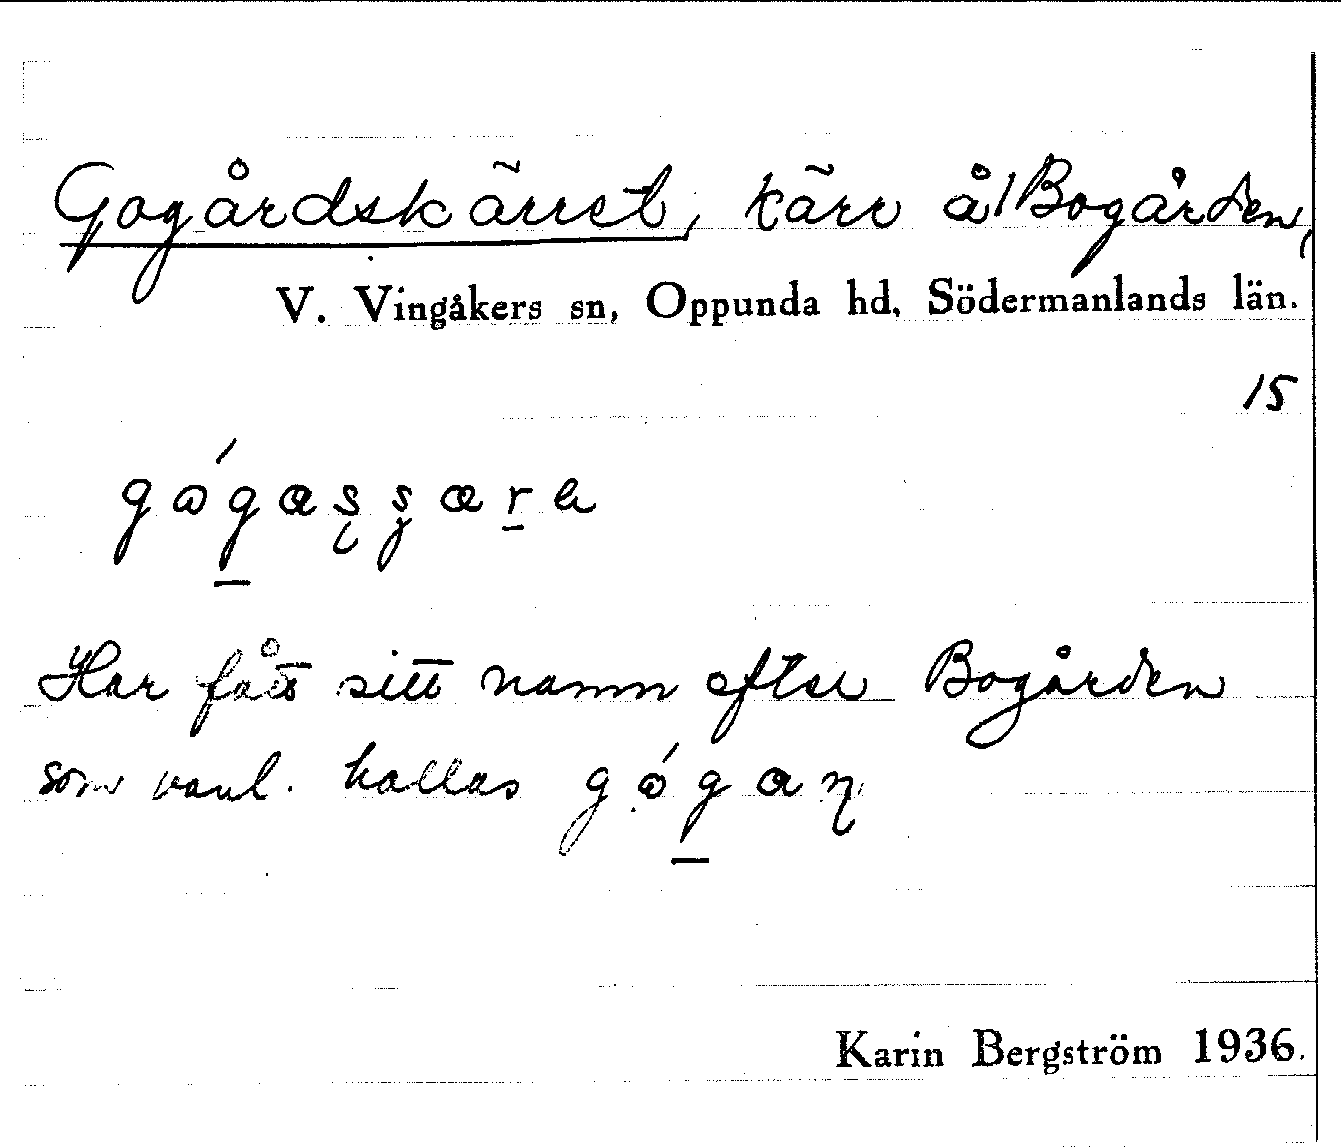 Gogårdskärret, kärr å Bogården,
V. Vingåkers sn, Oppunda hd, Södermanlands län.
15
Har fått sitt namn efter Bogården
som vanl. kallas
Karin Bergström 1936.